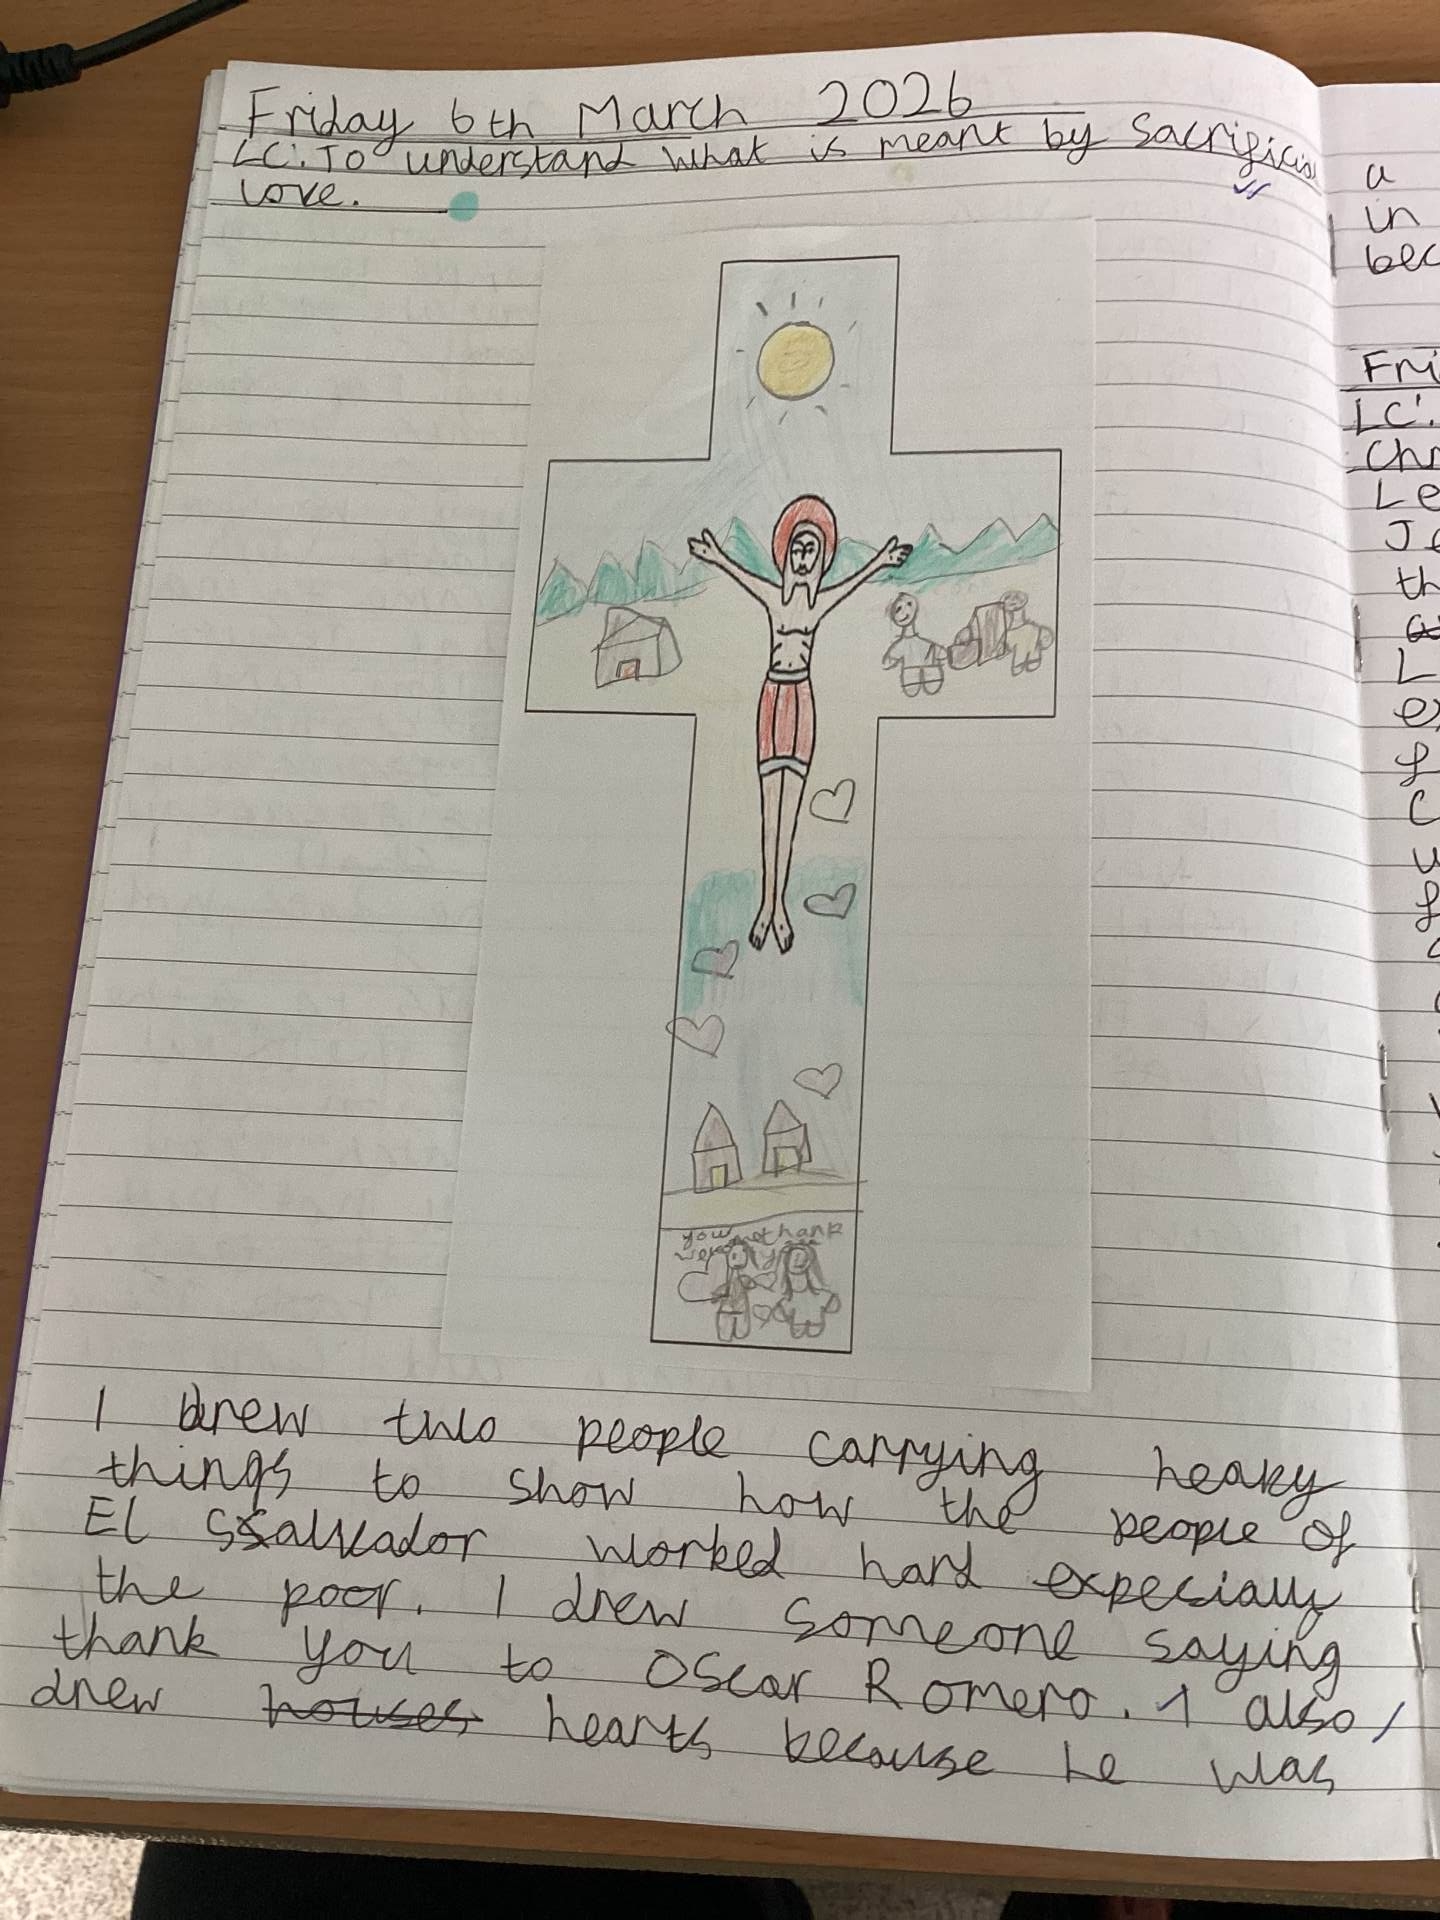 Friday 6th March 2026
LC: To understand what is meant by Sacrificial
love.
you thank
you
I drew two people carrying heavy
things to show how the people of
El Salvador worked hard expecially
the poor. I drew someone saying
thank you to Oscar Romero. I also
drew houses hearts because he was
a
in
bec
Fri
LC:
Chr
Le
Je
th
L
ex
f
C
u
f